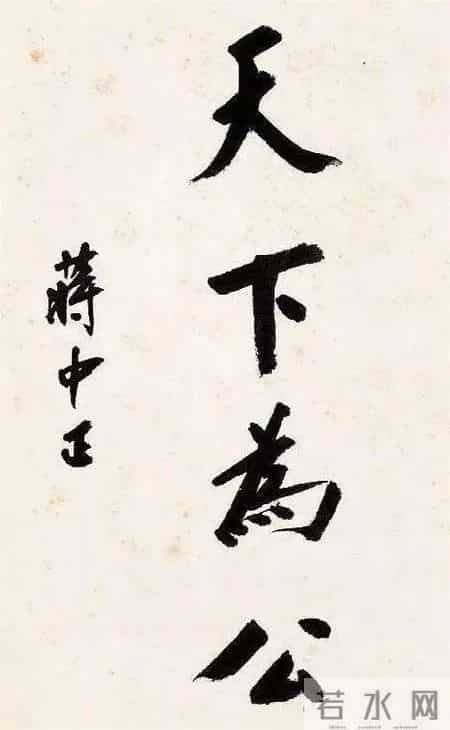 天下為公
蔣中正
若水网